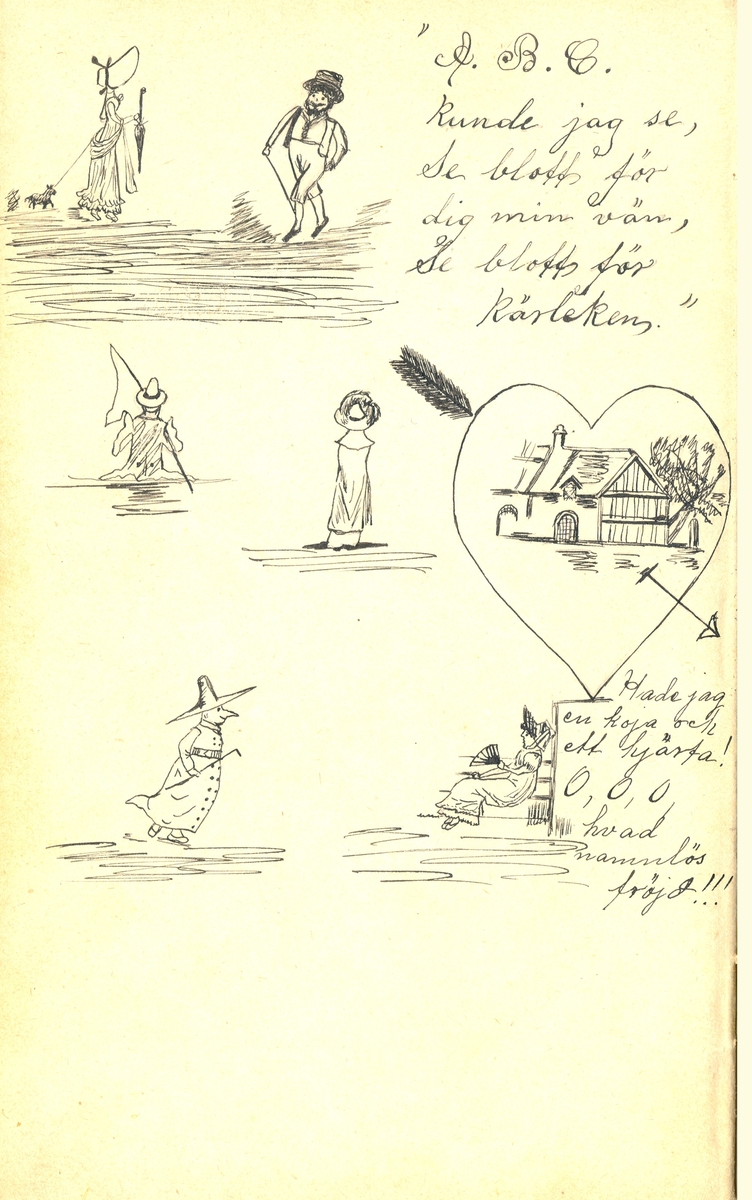 "A. B. C.
kunde jag se,
Se blott för
dig min vän,
Se blott för
kärleken."
Hade jag
en koja och
ett hjärta!
O, O, O,
hvad
namnlös
fröjd!!!